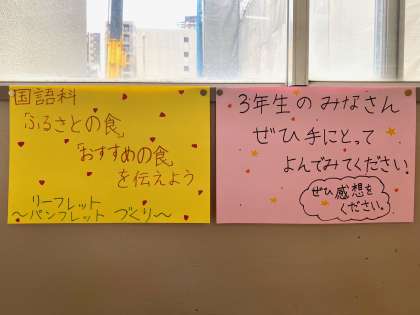 国語科
「ふるさとの食」
「おすすめの食」
を伝えよう
リーフレット
〜パンフレット づくり〜
3年生のみなさん
ぜひ手にとって
よんでみてください
ぜひ感想を
ください。